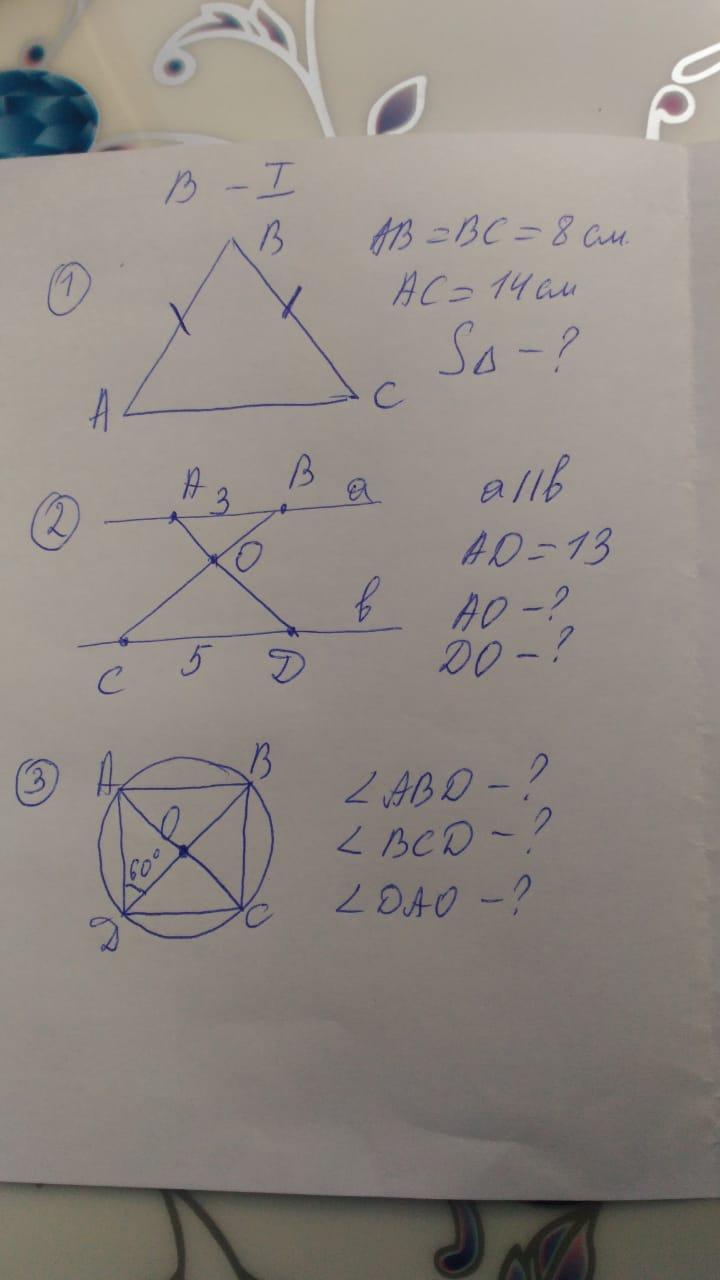 В - I
1
B
AB = BC = 8 см.
AC = 14 см
S△ - ?
A
C
2
A
3
B
a
a || b
O
AD = 13
b
AO - ?
C
5
D
DO - ?
3
A
B
∠ABD - ?
O
∠BCD - ?
60°
∠DAO - ?
D
C